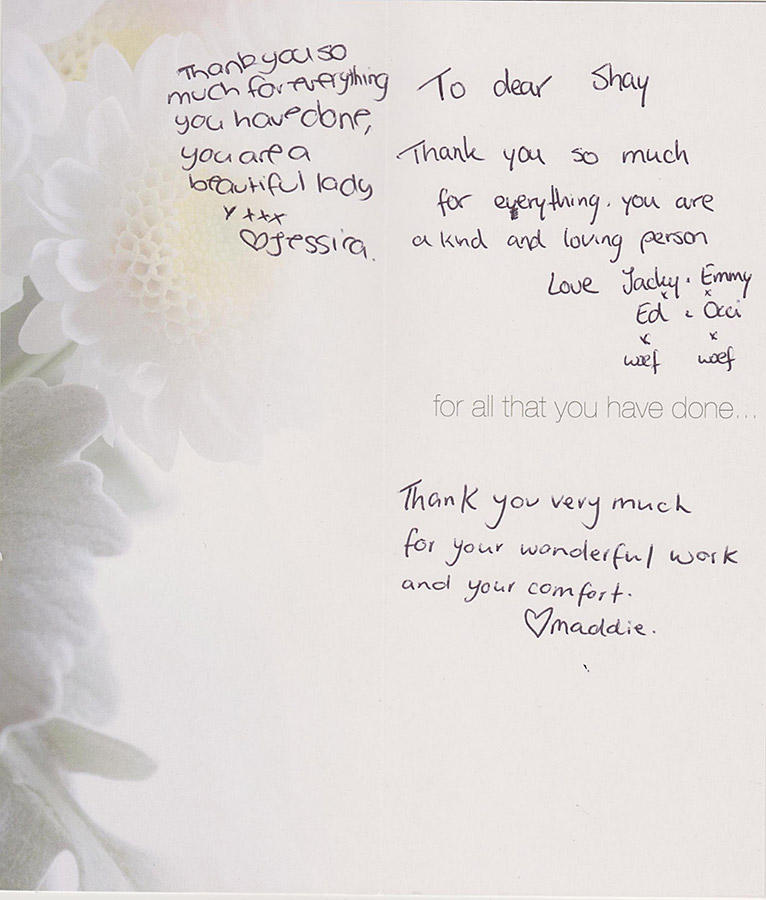 Thank you so
much for everything
you have done,
you are a
beautiful lady
x xxx
♡ Jessica.
To dear Shay
Thank you so much
for everything. you are
a kind and loving person
Love Jacky. Emmy
x x
Ed & Occi
x x
woef woef
for all that you have done...
Thank you very much
for your wonderful work
and your comfort.
♡ maddie.